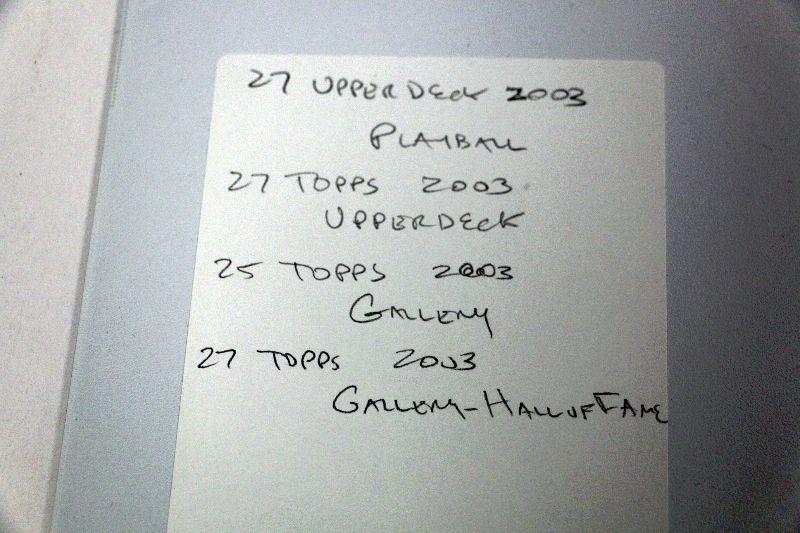 27 UPPER DECK 2003
PLAYBALL
27 TOPPS 2003
UPPERDECK
25 TOPPS 2003
GALLERY
27 TOPPS 2003
GALLERY-HALL OF FAME